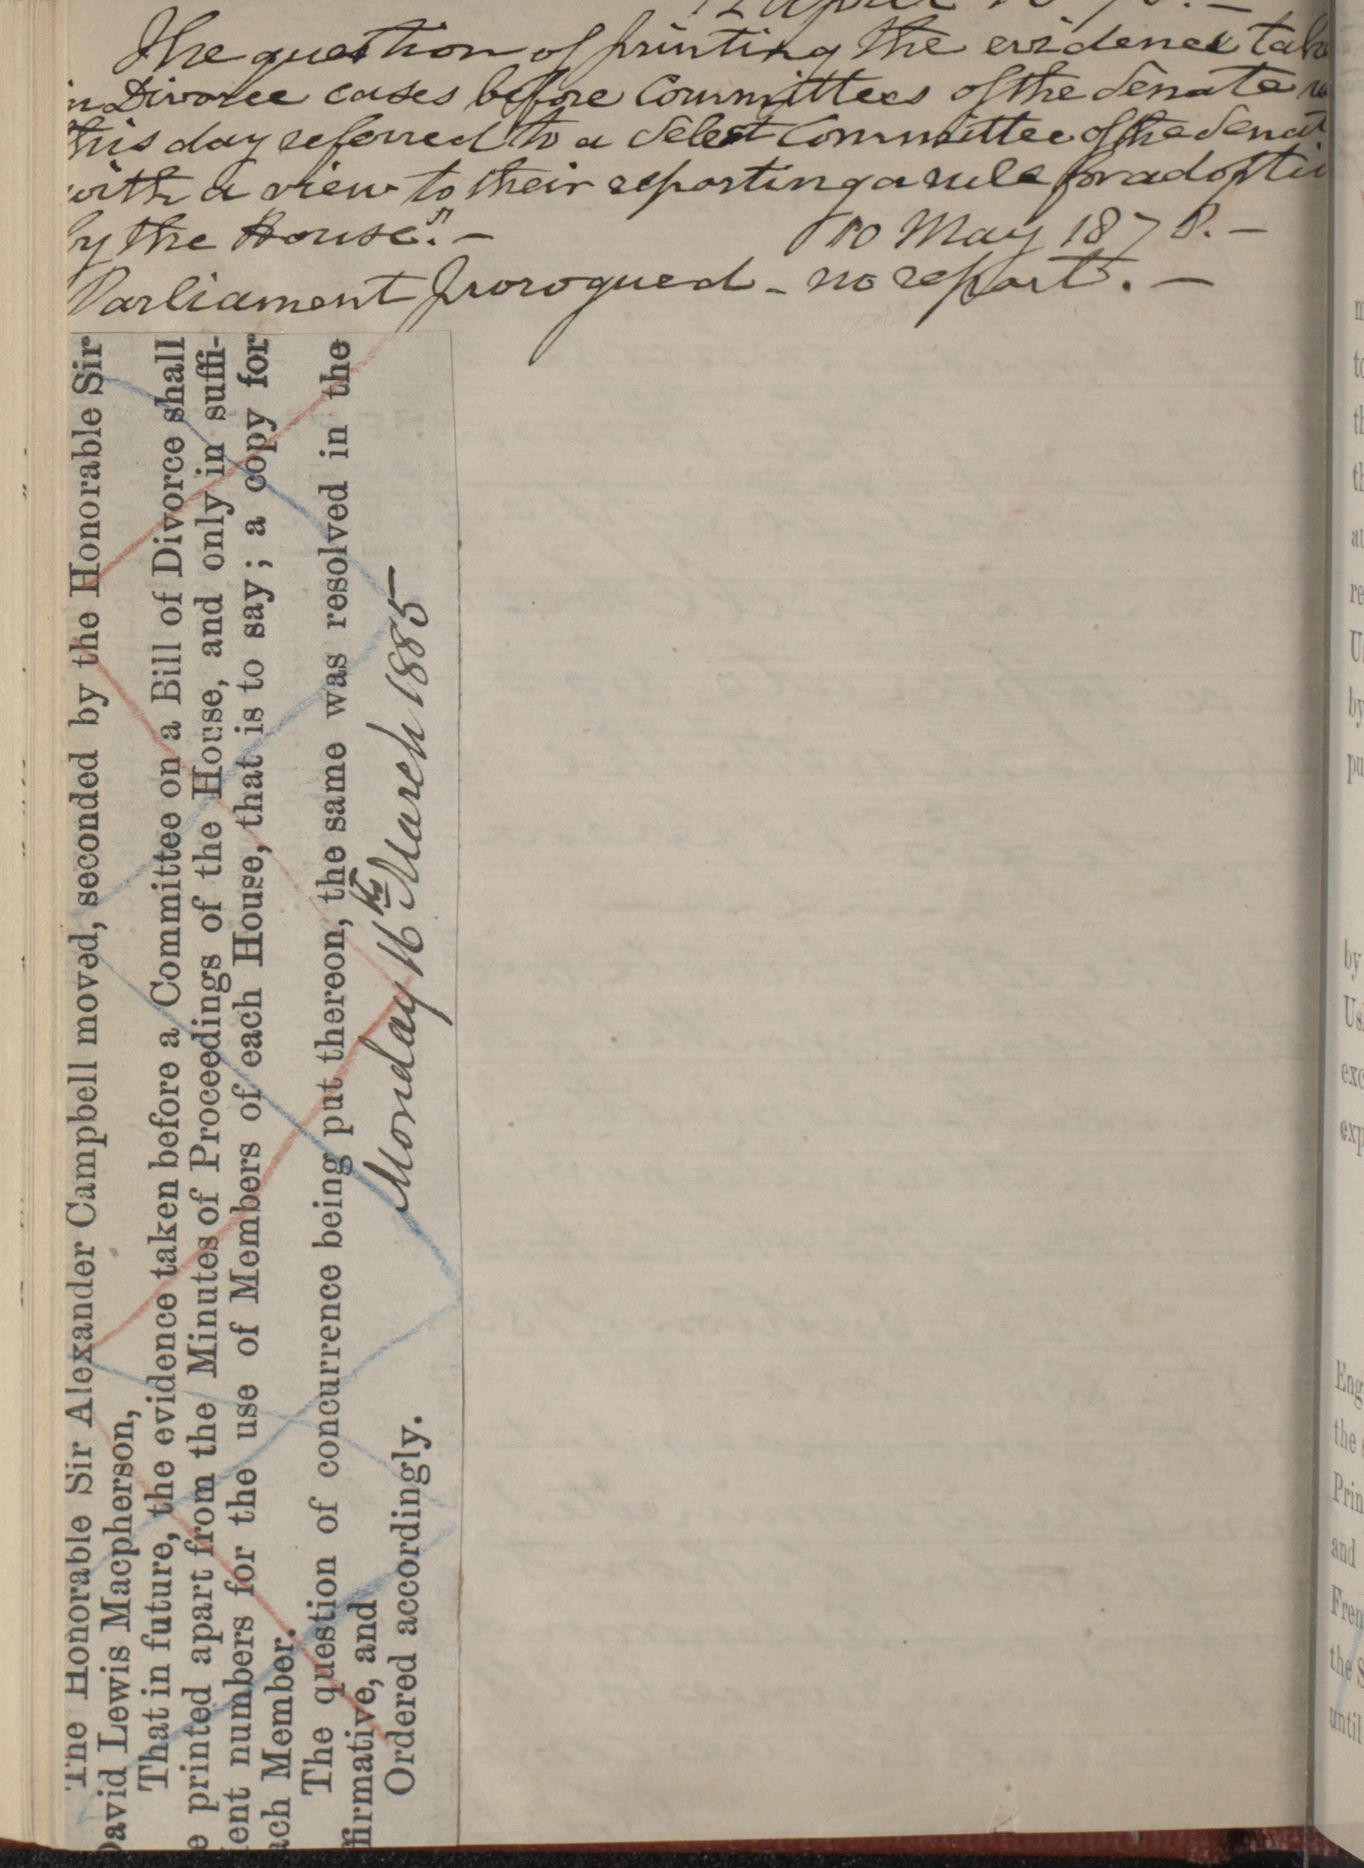 12 April 1878. —
The question of printing the evidence take
in Divorce cases before Committees of the Senate
this day referred to a Select Committee of the Senat
with a view to their reporting a rule for adoptio
by the House". — 10 May 1878. —
Parliament prorogued - no report. —
The Honorable Sir Alexander Campbell moved, seconded by the Honorable Sir
David Lewis Macpherson,
That in future, the evidence taken before a Committee on a Bill of Divorce shall
e printed apart from the Minutes of Proceedings of the House, and only in suffi-
ient numbers for the use of Members of each House, that is to say; a copy for
ach Member.
The question of concurrence being put thereon, the same was resolved in the
ffirmative, and
Ordered accordingly.
Monday 16th March 1885
m
to
th
th
at
re
Un
by
pu
by
Us
exc
exp
Eng
the s
Prin
and
Fren
the S
until